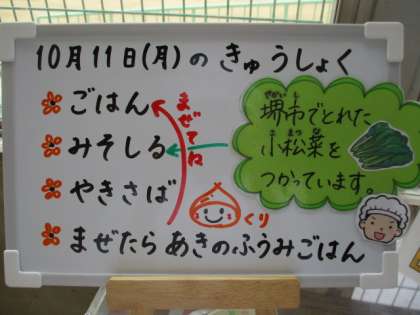 10月11日(月)の きゅうしょく
ごはん
みそしる
やきさば
まぜたら あきのふうみごはん
まぜてね
くり
堺市でとれた
小松菜を
つかっています。